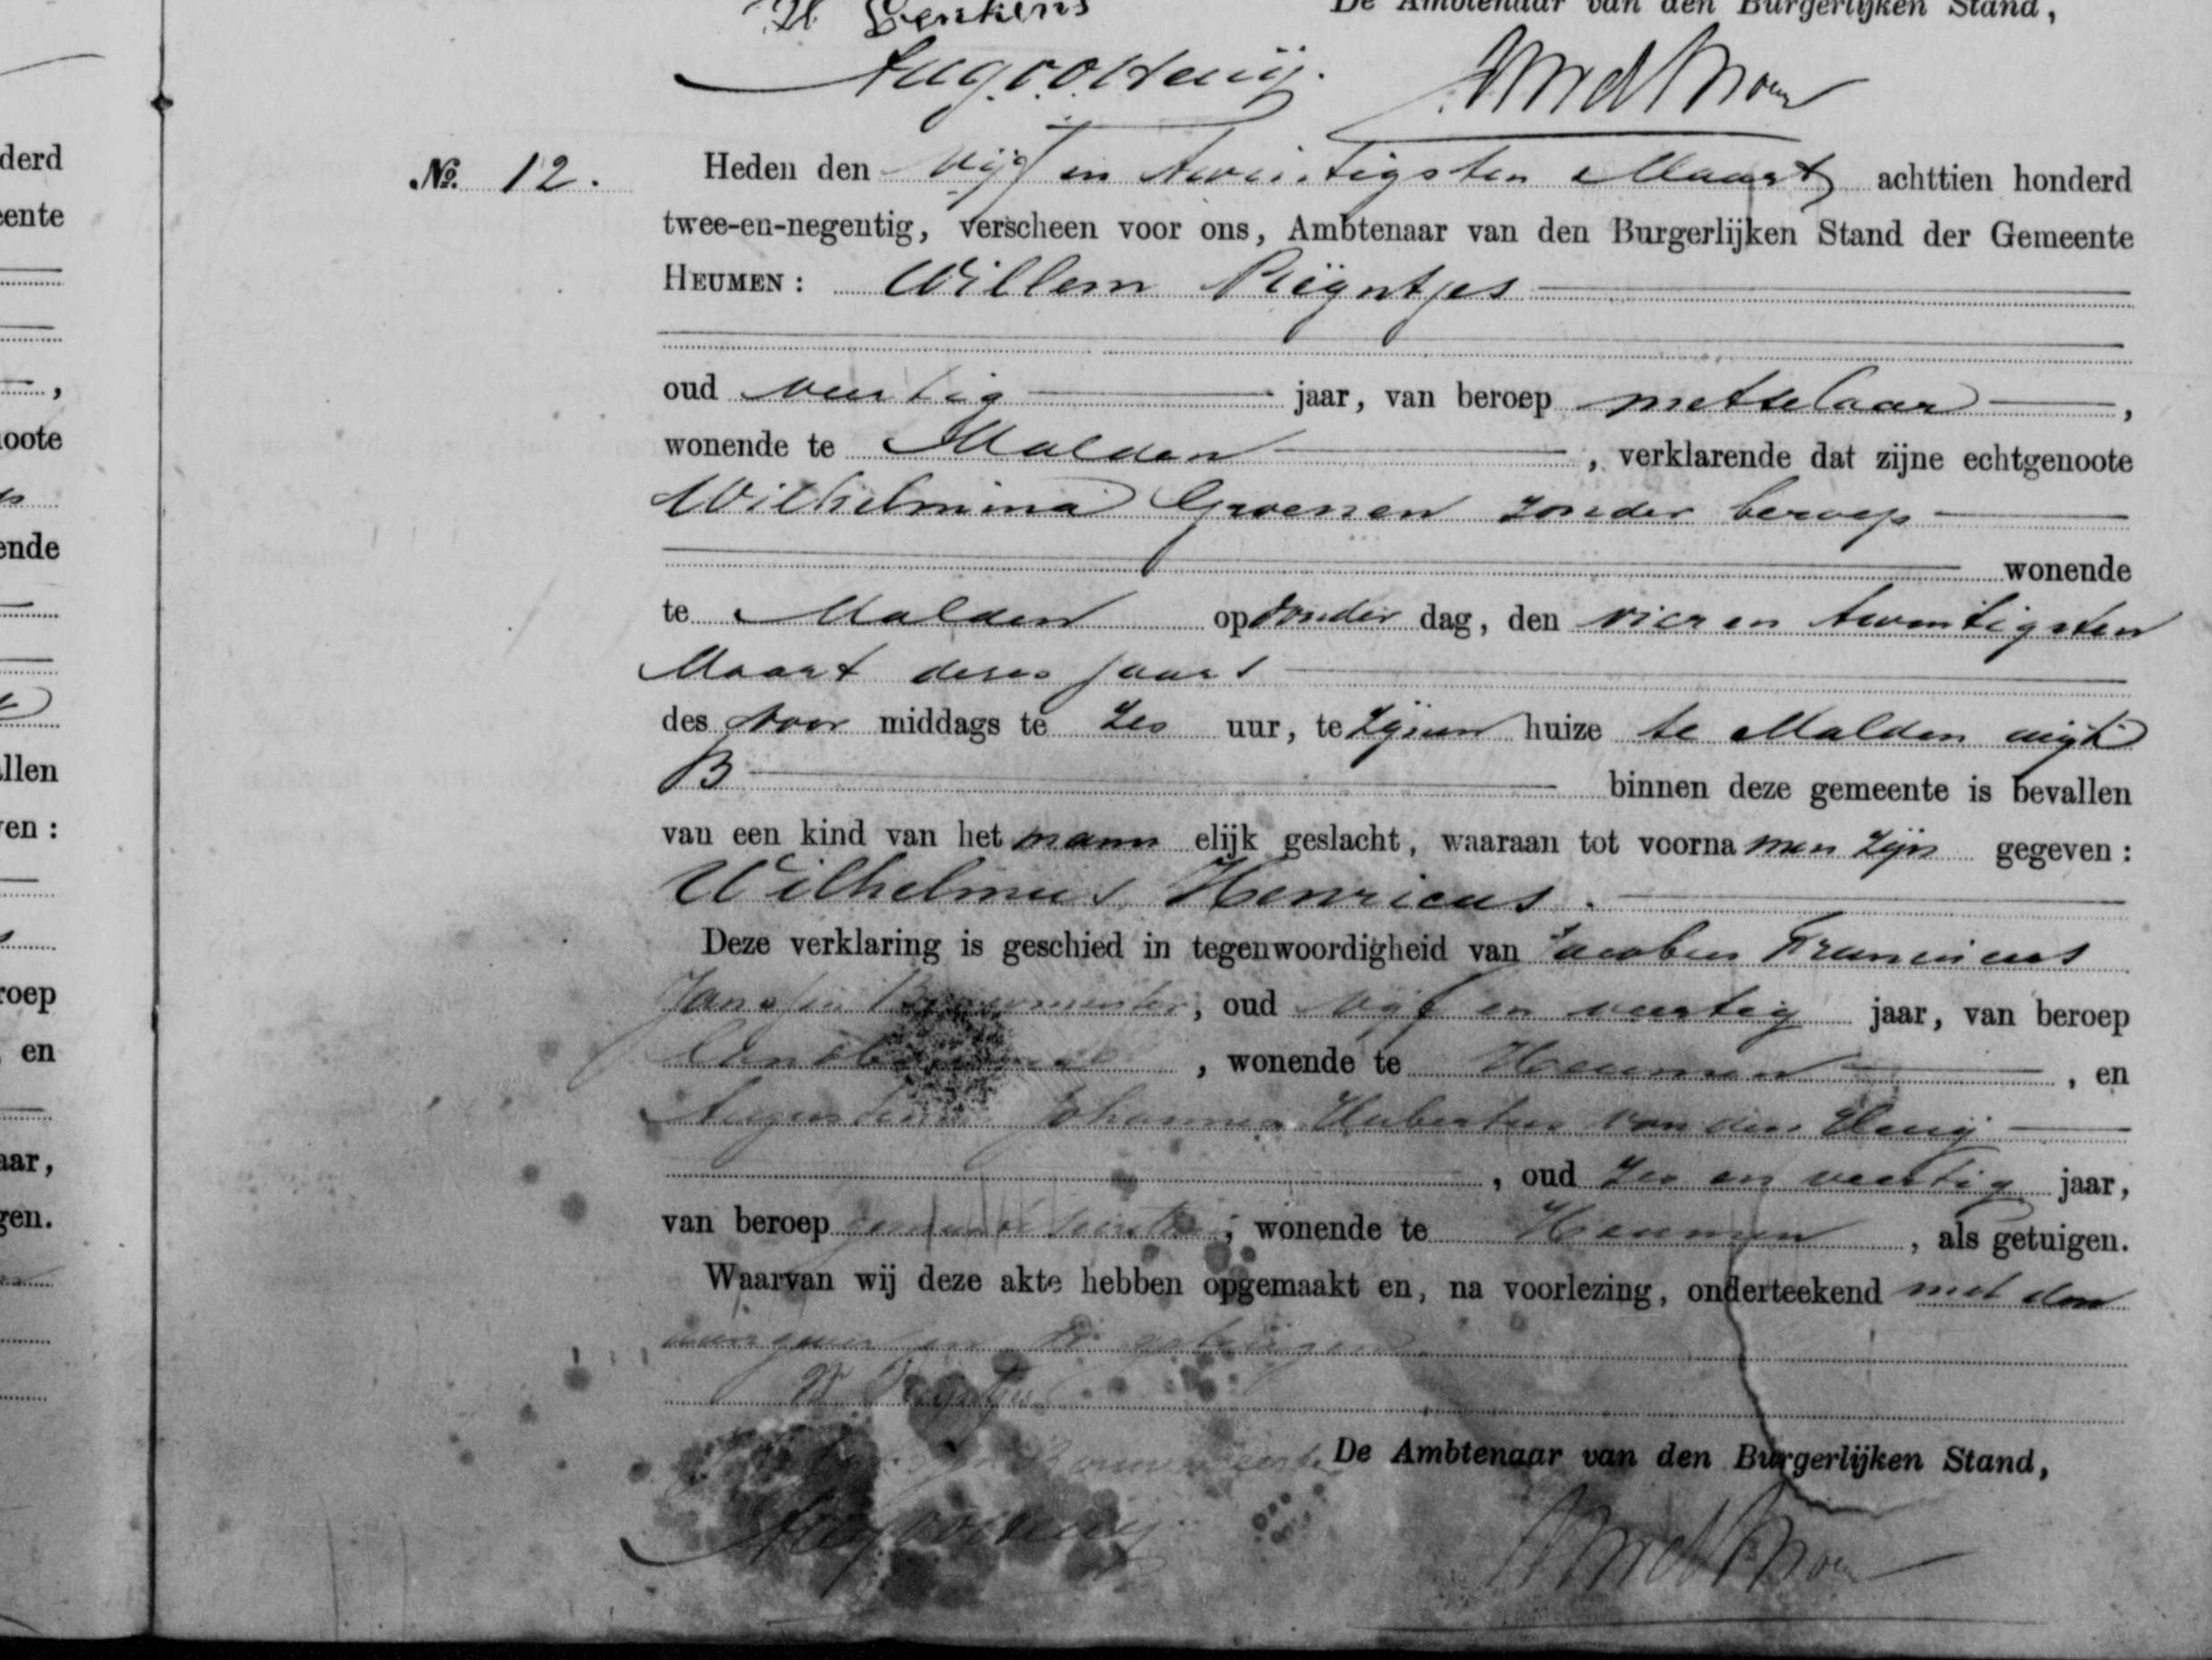 De Ambtenaar van den Burgerlijken Stand,
derd
ente
oote
ende
llen
ven:
roep
, en
aar,
gen.
No. 12.
Heden den vijf en twintigsten Maart achttien honderd
twee-en-negentig, verscheen voor ons, Ambtenaar van den Burgerlijken Stand der Gemeente
HEUMEN: Willem Reijntjes
oud veertig jaar, van beroep metselaar,
wonende te Malden, verklarende dat zijne echtgenoote
Wilhelmina Groenen zonder beroep
wonende
te Malden op donder dag, den vier en twintigsten
Maart dezes jaars
des voor middags te zes uur, te zijnen huize te Malden wijk
B binnen deze gemeente is bevallen
van een kind van het mann elijk geslacht, waaraan tot voorna men zijn gegeven:
Wilhelmus Henricus.
Deze verklaring is geschied in tegenwoordigheid van Jacobus Franciscus
Janssen, oud vijf en veertig jaar, van beroep
, wonende te Heumen, en
Johannes Hubertus van den
, oud zes en veertig jaar,
van beroep, wonende te Heumen, als getuigen.
Waarvan wij deze akte hebben opgemaakt en, na voorlezing, onderteekend met den
aangever en de getuigen
De Ambtenaar van den Burgerlijken Stand,